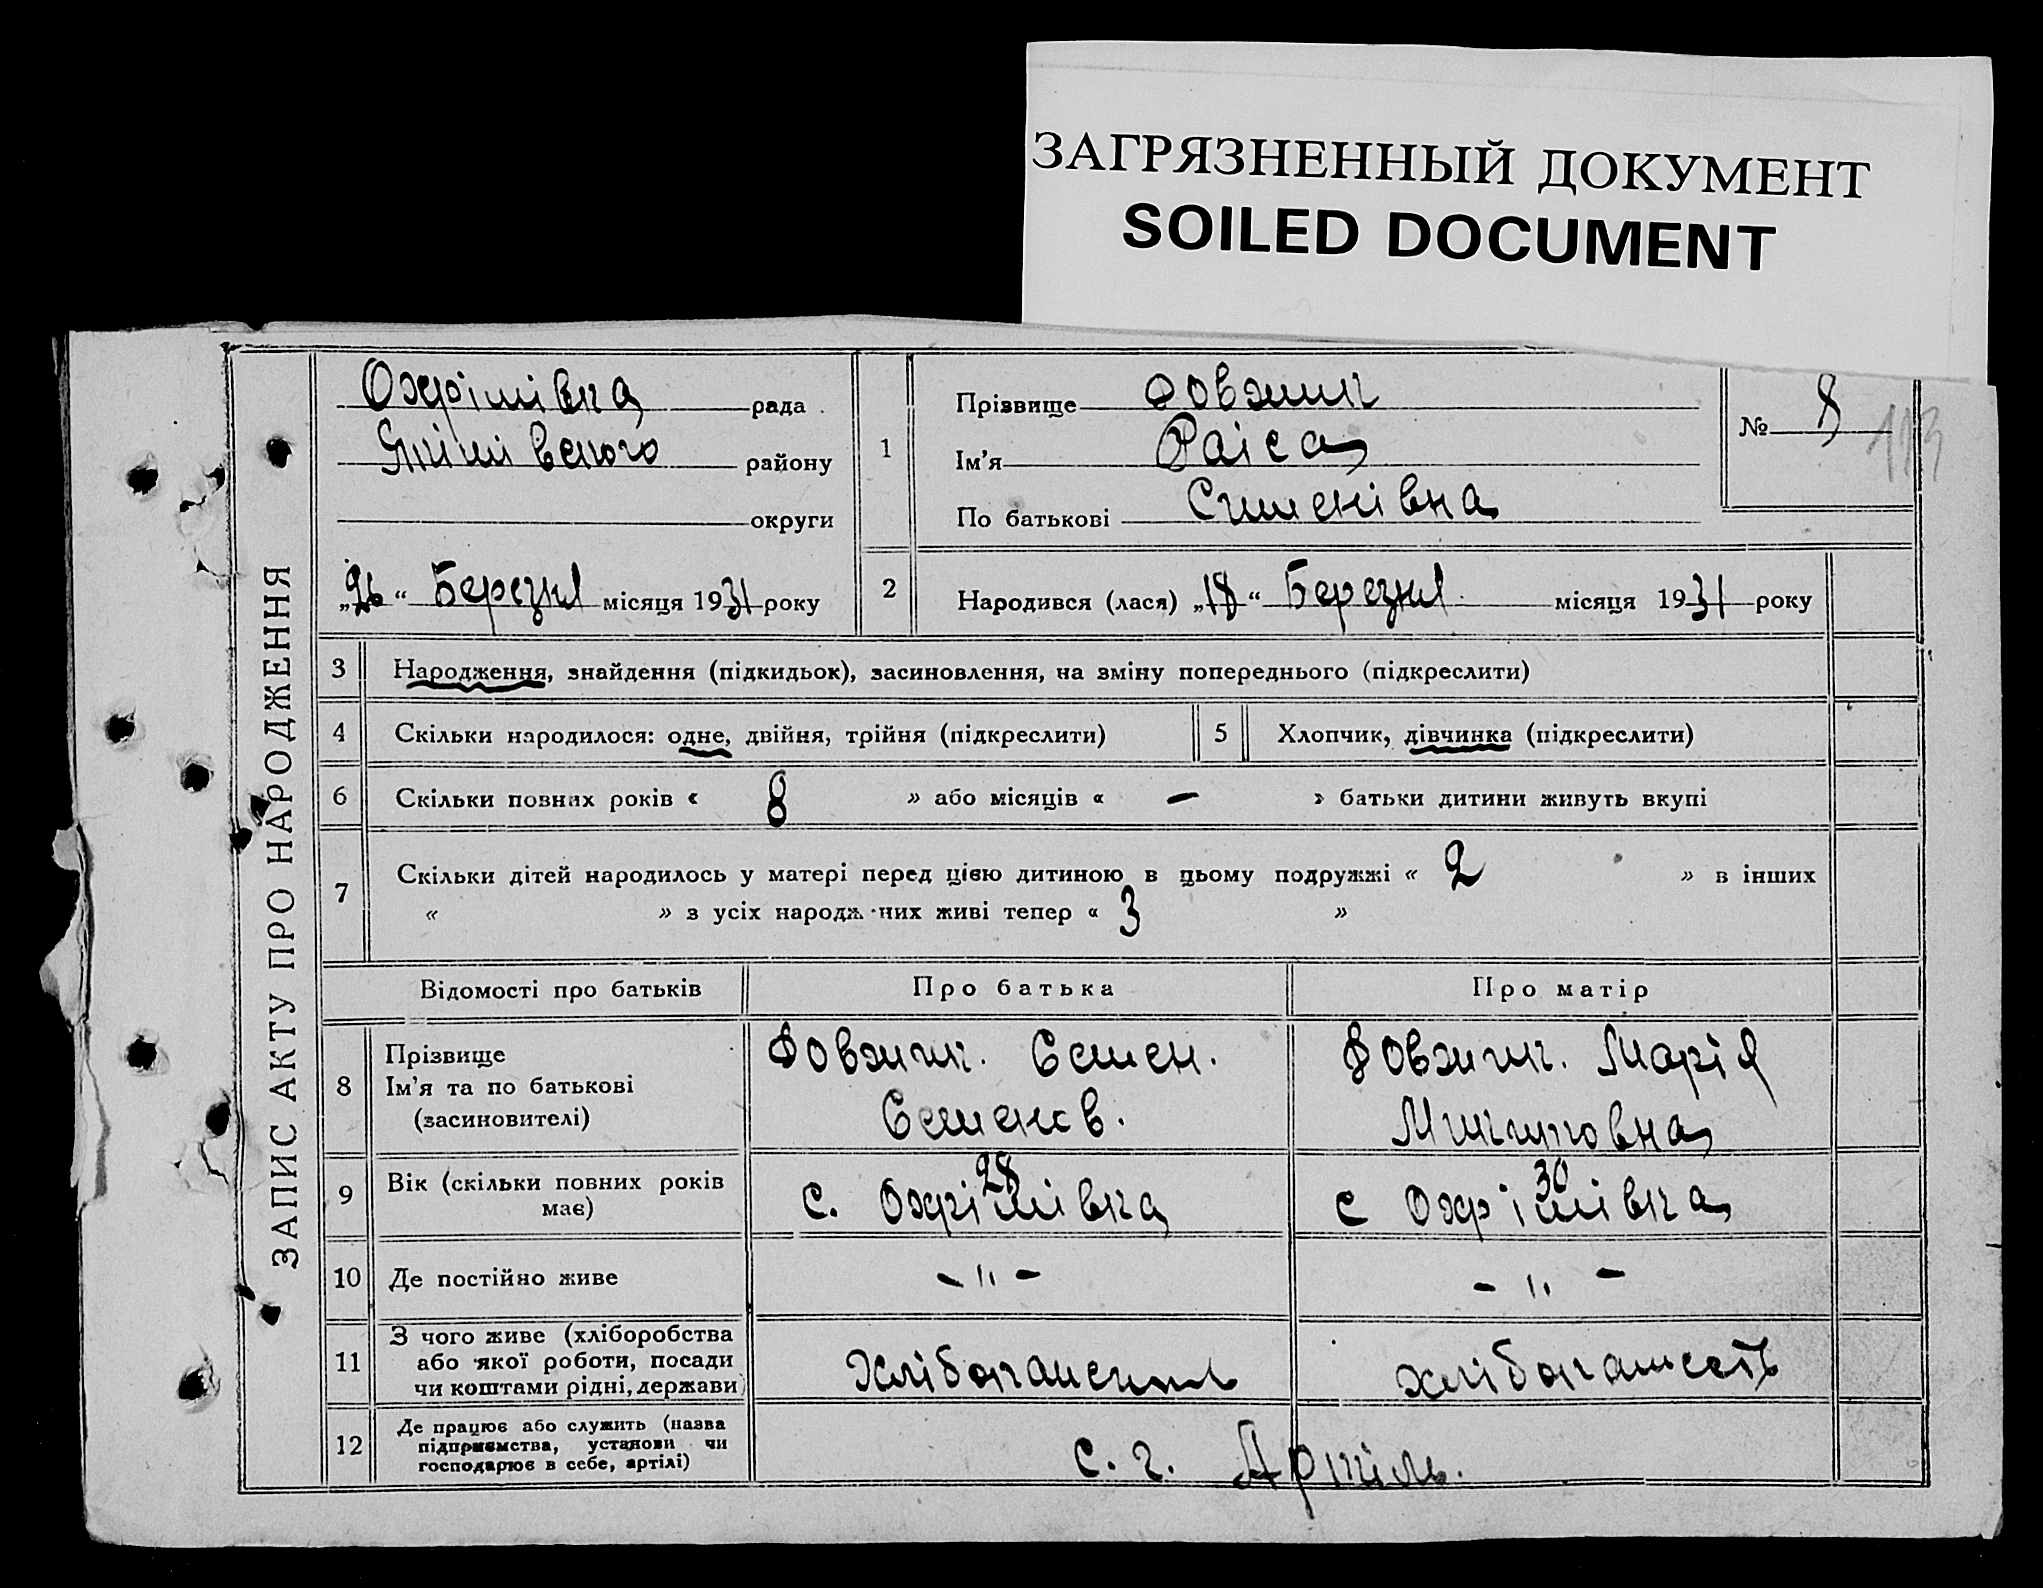 ЗАГРЯЗНЕННЫЙ ДОКУМЕНТ
SOILED DOCUMENT
ЗАПИС АКТУ ПРО НАРОДЖЕННЯ
Охрімівка рада
району
округи
„26“ Березня місяця 1931 року
1
Прізвище Довжик
Ім’я Раіса
По батькові Сименівна
№ 8
113
2
Народився (лася) „18“ Березня місяця 1931 року
3 Народження, знайдення (підкидьок), засиновлення, на зміну попереднього (підкреслити)
4 Скільки народилося: одне, двійня, трійня (підкреслити)
5 Хлопчик, дівчинка (підкреслити)
6 Скільки повних років « 8 » або місяців « – » батьки дитини живуть вкупі
7 Скільки дітей народилось у матері перед цією дитиною в цьому подружжі « 2 » в інших
« » з усіх народж них живі тепер « 3 »
Відомості про батьків Про батька Про матір
8 Прізвище
Ім’я та по батькові
(засиновителі)
Довжик. Семен.
Семенов.
Довжик. Марія
9 Вік (скільки повних років
має)
28
с. Охрімівка
30
с Охрімівка
10 Де постійно живе – " – – " –
11 З чого живе (хліборобства
або якої роботи, посади
чи коштами рідні, держави)
12 Де працює або служить (назва
підприємства, установи чи
господарює в себе, артілі)
с. г. Артіль.